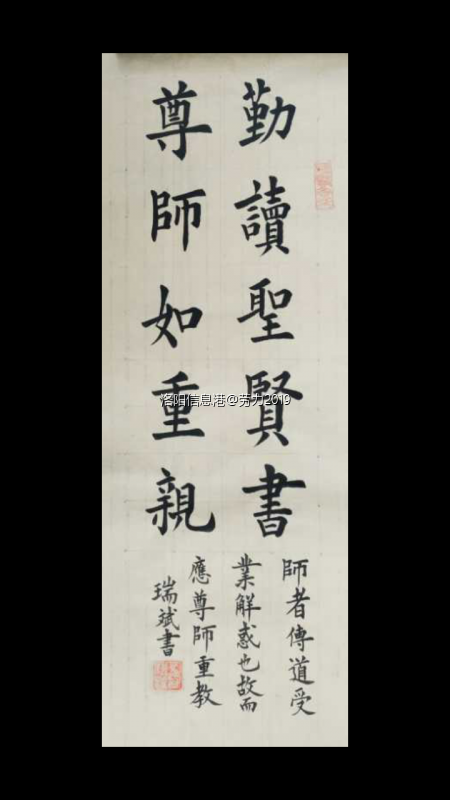 勤讀聖賢書
尊師如重親
師者傳道受
業解惑也故而
應尊師重教
瑞斌書
洛阳信息港@劳力2019